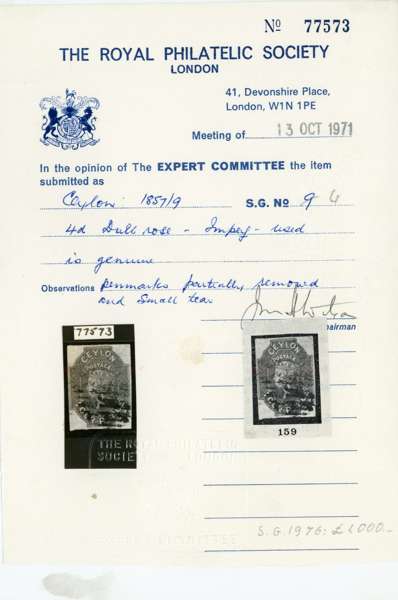 No 77573
THE ROYAL PHILATELIC SOCIETY
LONDON
41, Devonshire Place,
London, W1N 1PE
Meeting of 13 OCT 1971
In the opinion of The EXPERT COMMITTEE the item
submitted as
Ceylon: 1857/9 S.G. No 9 4
4d Dull rose - Imperf - used
is genuine
Observations penmarks partially removed
and small tear
hairman
77573
CEYLON
POSTAGE
CEYLON
POSTAGE
159
THE ROYAL PHILATELIC
SOCIETY LONDON
EXPERT COMMITTEE
S.G. 1976: £1000.-